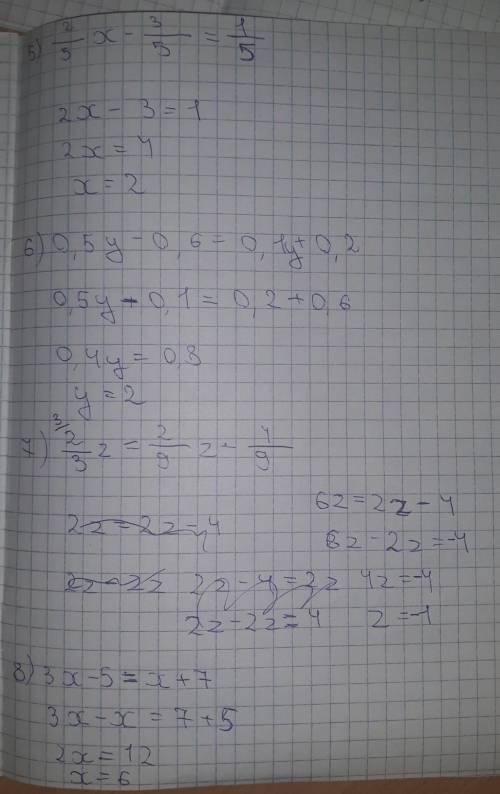 5) 2/5 x - 3/5 = 1/5
2x - 3 = 1
2x = 4
x = 2
6) 0,5y - 0,6 = 0,1y + 0,2
0,5y - 0,1 = 0,2 + 0,6
0,4y = 0,8
y = 2
7) 3/ 2/3 z = 2/9 z - 4/9
2z = 2z - 4
6z = 2z - 4
6z - 2z = -4
2z - 4 = 2z
4z = -4
2z - 2z = 4
z = -1
8) 3x - 5 = x + 7
3x - x = 7 + 5
2x = 12
x = 6